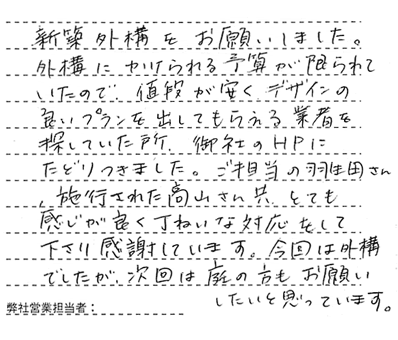 新築外構をお願いしました。
外構にかけられる予算が限られて
いたので、値段が安くデザインの
良いプランを出してもらえる業者を
探していた所、御社のHPに
たどりつきました。ご担当の羽生田さん
、施行された高山さん共、とても
感じが良く丁ねいな対応をして
下さり感謝しています。今回は外構
でしたが、次回は庭の方もお願い
したいと思っています。
弊社営業担当者：